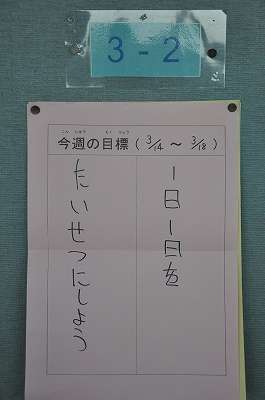 3-2
こん しゅう もく ひょう
今週の目標(3/14~3/18)
1日1日を
たいせつにしよう